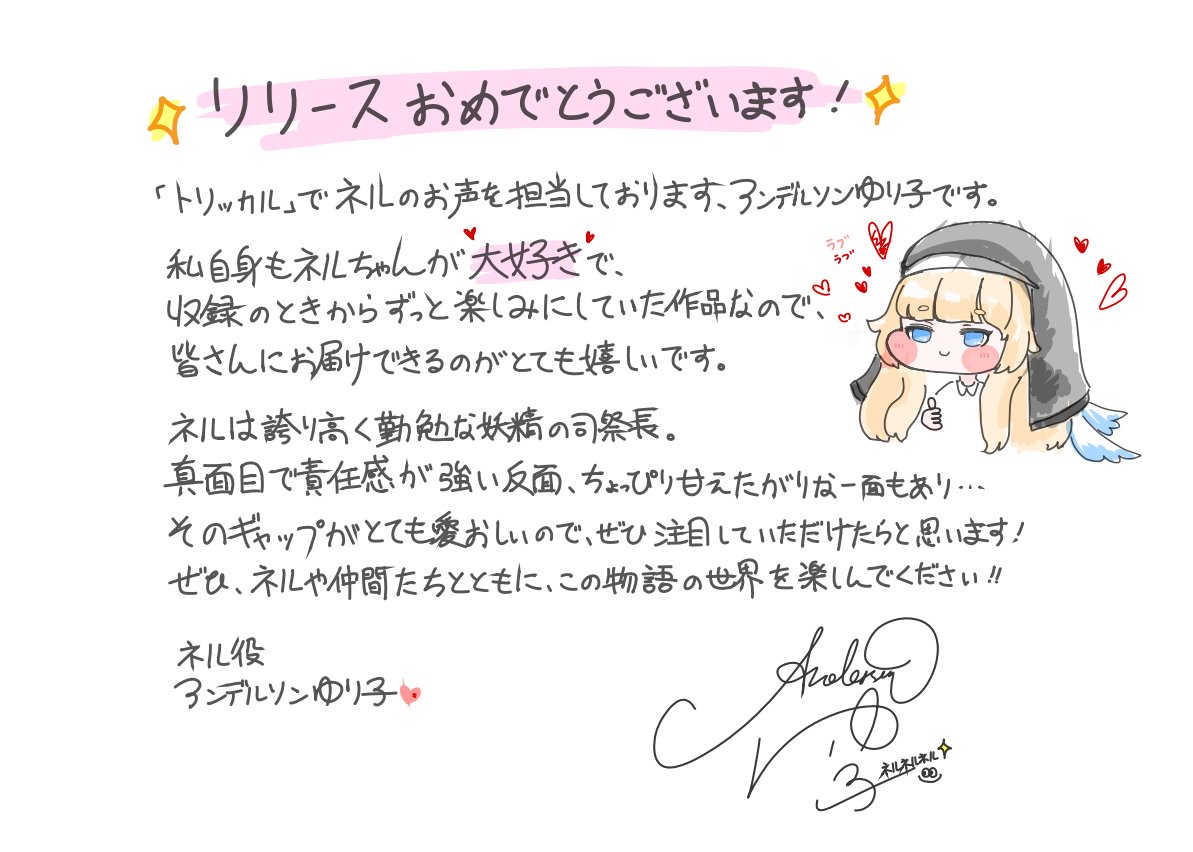 リリースおめでとうございます！
「トリッカル」でネルのお声を担当しております、アンデルソンゆり子です。
私自身もネルちゃんが大好きで、
収録のときからずっと楽しみにしていた作品なので、
皆さんにお届けできるのがとても嬉しいです。
ラブ
ラブ
ネルは誇り高く勤勉な妖精の司祭長。
真面目で責任感が強い反面、ちょっぴり甘えたがりな一面もあり…
そのギャップがとても愛おしいので、ぜひ注目していただけたらと思います！
ぜひ、ネルや仲間たちとともに、この物語の世界を楽しんでください!!
ネル役
アンデルソンゆり子
Anderson
ゆり子
ネルネルネル